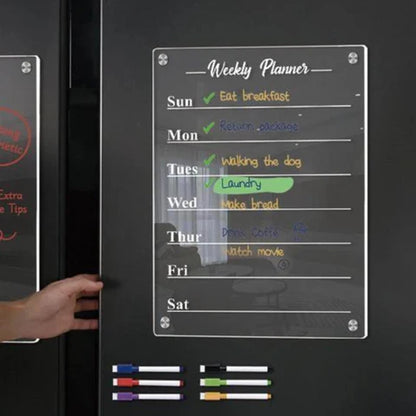 ny
netic
Extra
e Tips
Weekly Planner
Sun ✓ Eat breakfast
Mon ✓ Return package
Tues ✓ Walking the dog
✓ Laundry
Wed Make bread
Thur Drink Coffe
Watch movie
Fri
Sat